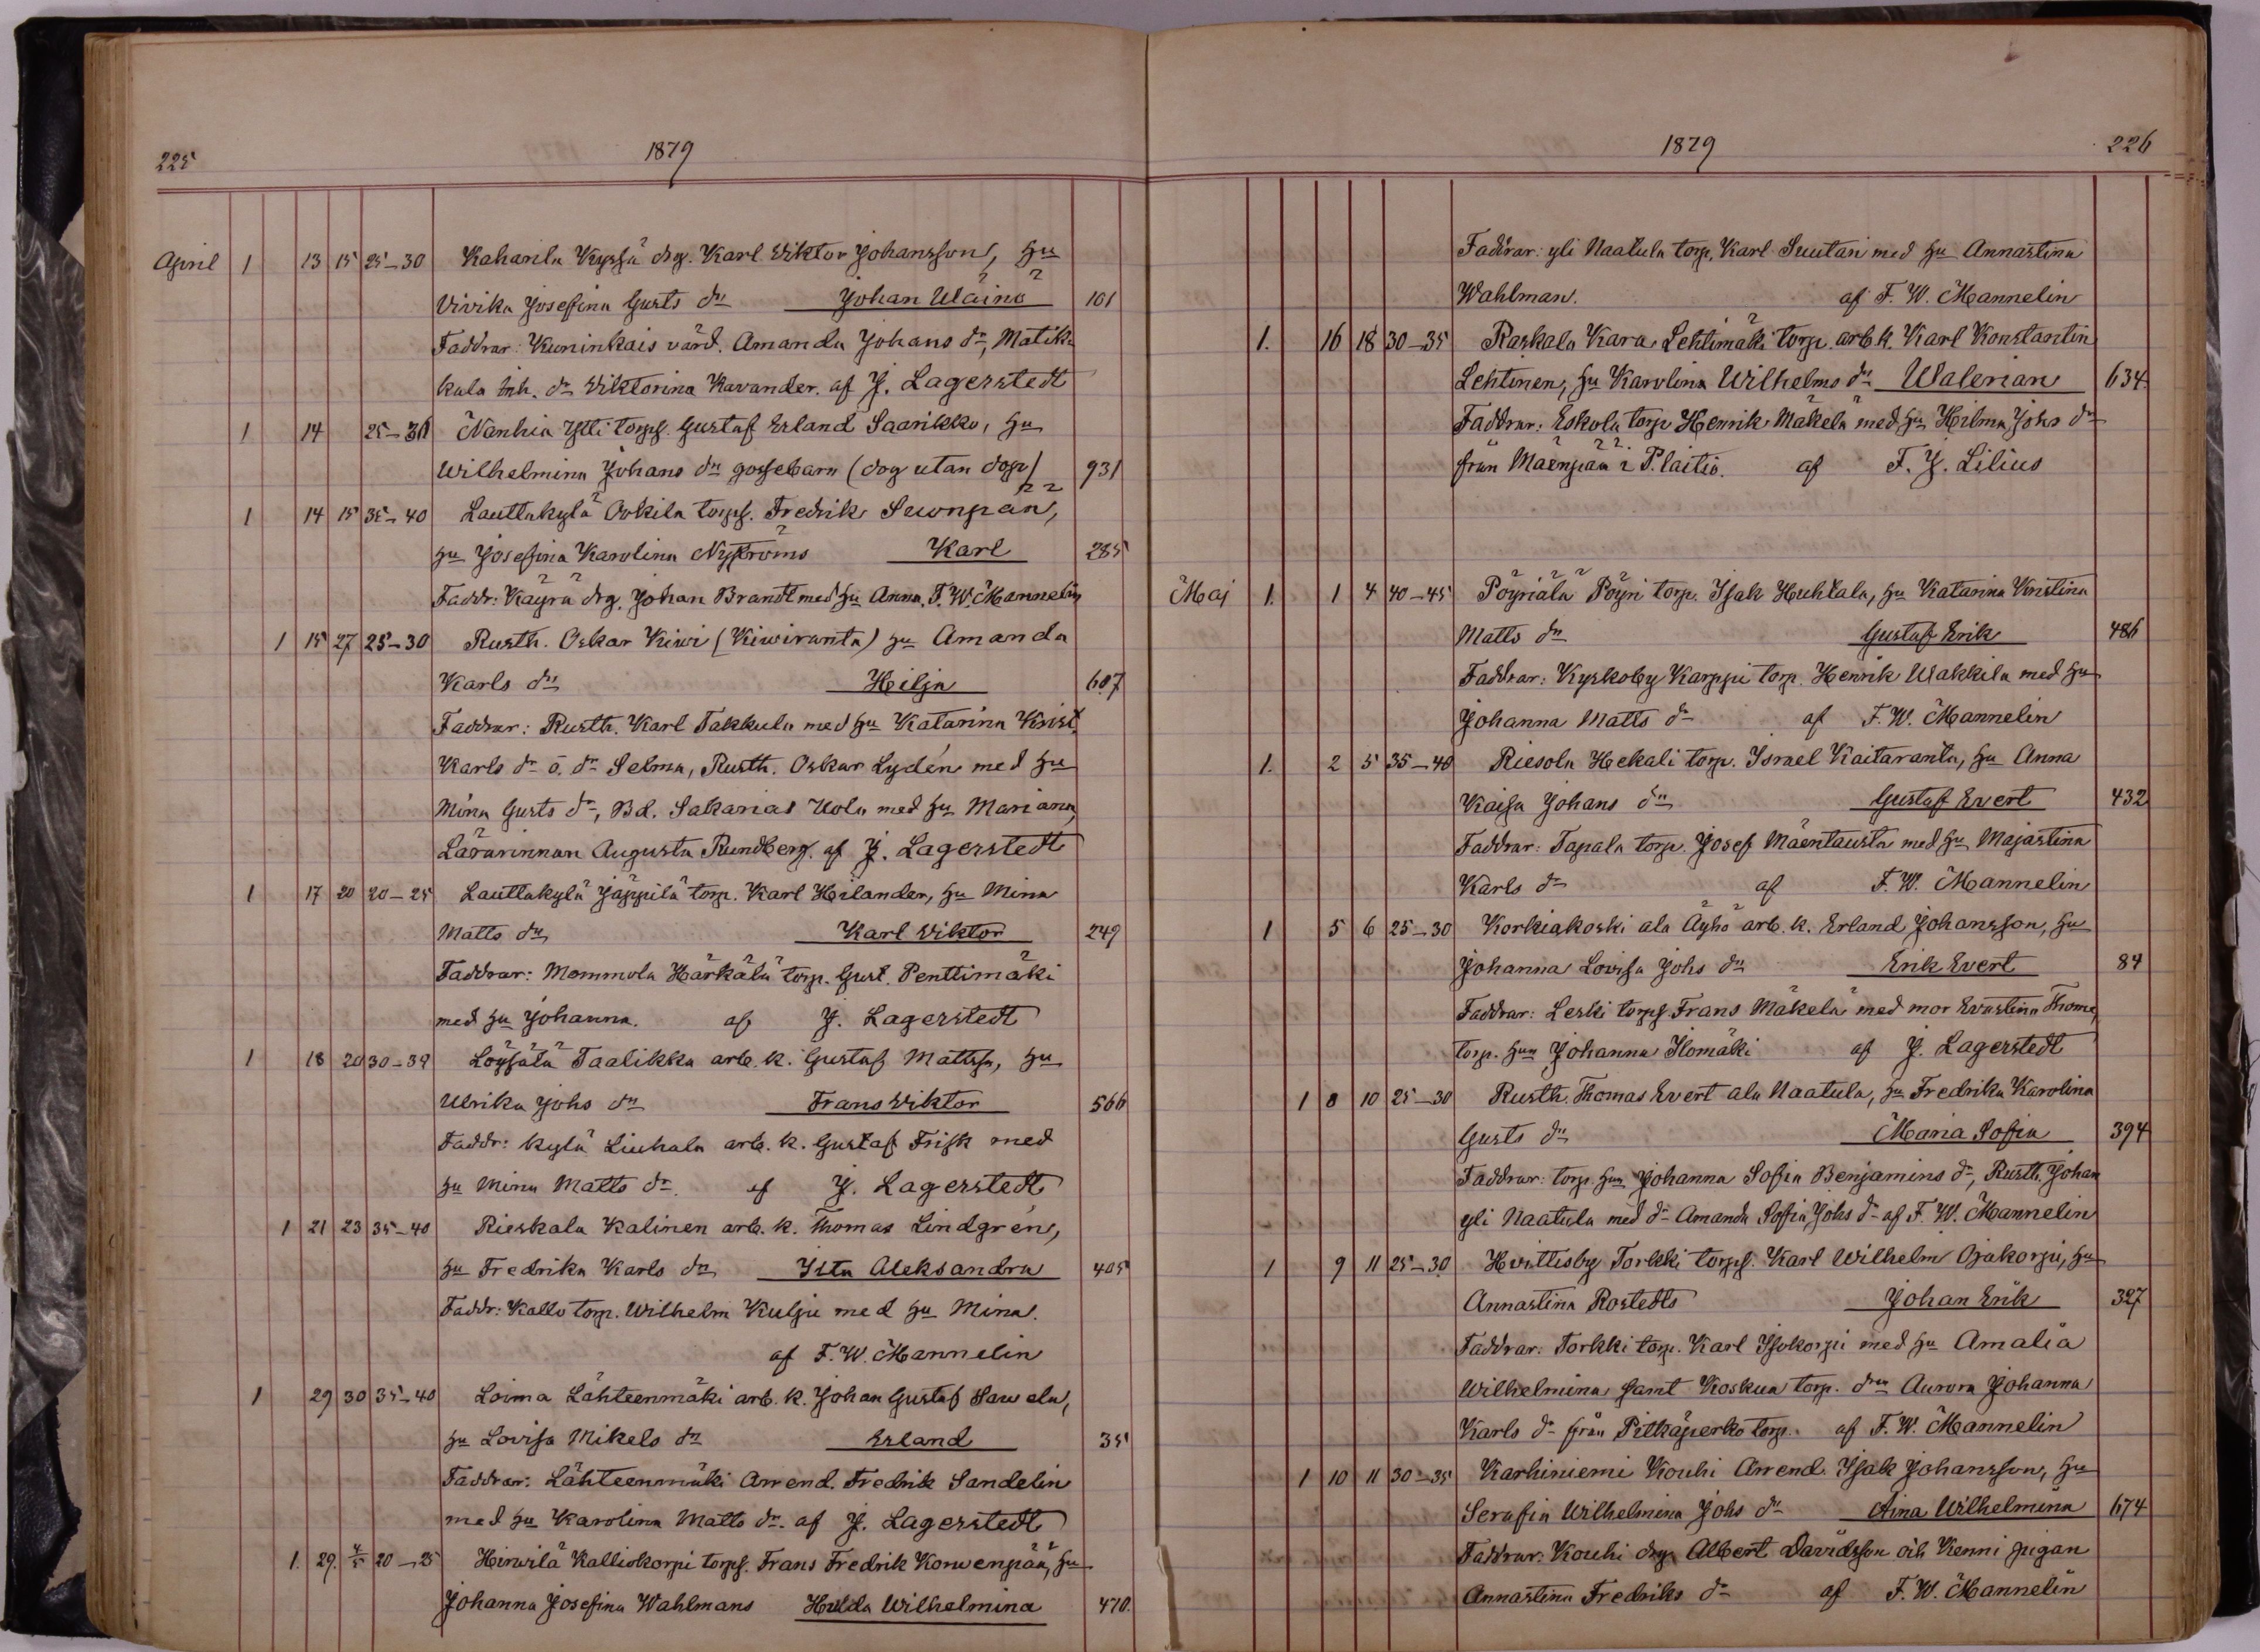 225
1879
April 1 13 15 25–30 Kaharila Kyssä drg. Karl Viktor Johansson, hu
Vivika Josefina Gusts dr Johan Wäinö 101
Faddrar: Kuninkais värd. Amanda Johans dr, Matik
kala inh. dr Viktorina Kavander. af J. Lagerstedt
1 14 25–30 Nanhia Ylli torpf. Gustaf Erland Saarikko, hu
Wilhelmina Johans dr gossebarn (dog utan dop) 931
1 14 15 35–40 Lauttakylä Ookila torpf. Fredrik Suonpää,
hu Josefina Karolina Nyströms Karl 285
Faddr: Käyrä drg. Johan Brandt med hu Anna. F. W. Mannelin
1 15 27 25–30 Rusth. Oskar Kiwi (Kiwiranta) hu Amanda
Karls dr Heilja 607
Faddrar: Rusth. Karl Takkula med hu Katarina Krist.
Karls dr o. dr Selma, Rusth. Oskar Lydén med hu
Mina Gusts dr, Bd. Sakarias Uola med hu Mariana,
Lärarinnan Augusta Rundberg. af J. Lagerstedt
1 17 20 20–25 Lauttakylä Jäppilä torp. Karl Hilander, hu Mina
Matts dr Karl Viktor 249
Faddrar: Mommola Härkälä torp. Gust. Penttimäki
med hu Johanna. af J. Lagerstedt
1 18 20 30–39 Löysälä Taalikka arb. k. Gustaf Mattss, hu
Ulrika Johs dr Frans Viktor 566
Faddr: Kylä Liuhala arb. k. Gustaf Frisk med
hu Mina Matts dr. af J. Lagerstedt
1 21 23 35–40 Rieskala Kalinen arb. k. Thomas Lindgrén,
hu Fredrika Karls dr Ida Aleksandra 405
Faddr: Kallo torp. Wilhelm Kulju med hu Mina.
af F. W. Mannelin
1 29 30 35–40 Loima Lähteenmäki arb. k. Johan Gustaf Sawela,
hu Lovisa Mikels dr Erland 35
Faddrar: Lähteenmäki Arrend. Fredrik Sandelin
med hu Karolina Matts dr. af J. Lagerstedt
1. 29. 4/5 20–25 Hirwilä Kalliokorpi torpf. Frans Fredrik Korwenpää, hu
Johanna Josefina Wahlmans Hulda Wilhelmina 470.
1879
226
Faddrar: yli Naatula torp. Karl Suutari med hu Annastina
Wahlman. af F. W. Mannelin
1. 16 18 30–35 Raskala Kara Lehtimäki torp. arb. k. Karl Konstantin
Lehtinen, hu Karolina Wilhelms dr Walerian 634.
Faddrar: Eskola torp Henrik Mäkelä med hu Hilma Johs dr
från Mäenpää i P. laitio. af F. J. Lilius
Maj 1. 1 4 40–45 Pöyriälä Pöyri torp. Isak Huhtala, hu Katarina Kristina
Matts dr Gustaf Erik 486
Faddrar: Kyrkoby Karppi torp. Henrik Wakkila med hu
Johanna Matts dr af F. W. Mannelin
1. 2 5 35–40 Riesola Hekali torp. Israel Kaitaranta, hu Anna
Kaisa Johans dr Gustaf Evert 432
Faddrar: Tapala torp. Josef Mäentausta med hu Majastina
Karls dr af F. W. Mannelin
1 5 6 25–30 Korkiakoski ala Äyhö arb. k. Erland Johansson, hu
Johanna Lovisa Johs dr Erik Evert 84
Faddrar: Leski torpf Frans Mäkelä med mor Evastina Thome,
torp. hun Johanna Ilomäki af J. Lagerstedt
1 8 10 25–30 Rusth. Thomas Evert ala Naatula, hu Fredrika Karolina
Gusts dr Maria Sofia 394
Faddrar: torp. hun Johanna Sofia Benjamins dr, Rusth. Johan
yli Naatula med dr Amanda Sofia Johs dr af F. W. Mannelin
1 9 11 25–30 Hvittisby Torkki torpf. Karl Wilhelm Ojakorpi, hu
Annastina Rostedts Johan Erik 327
Faddrar: Torkki torp. Karl Isokorpi med hu Amalia
Wilhelmina samt Koskua torp. drn Aurora Johanna
Karls dr från Pitkäperko torp. af F. W. Mannelin
1 10 11 30–35 Karhiniemi Kouhi Arrend. Isak Johansson, hu
Serafia Wilhelmina Johs dr Aina Wilhelmina 674
Faddrar: Kouhi drg. Albert Davidsson och Kenni pigan
Annastina Fredriks dr af F. W. Mannelin